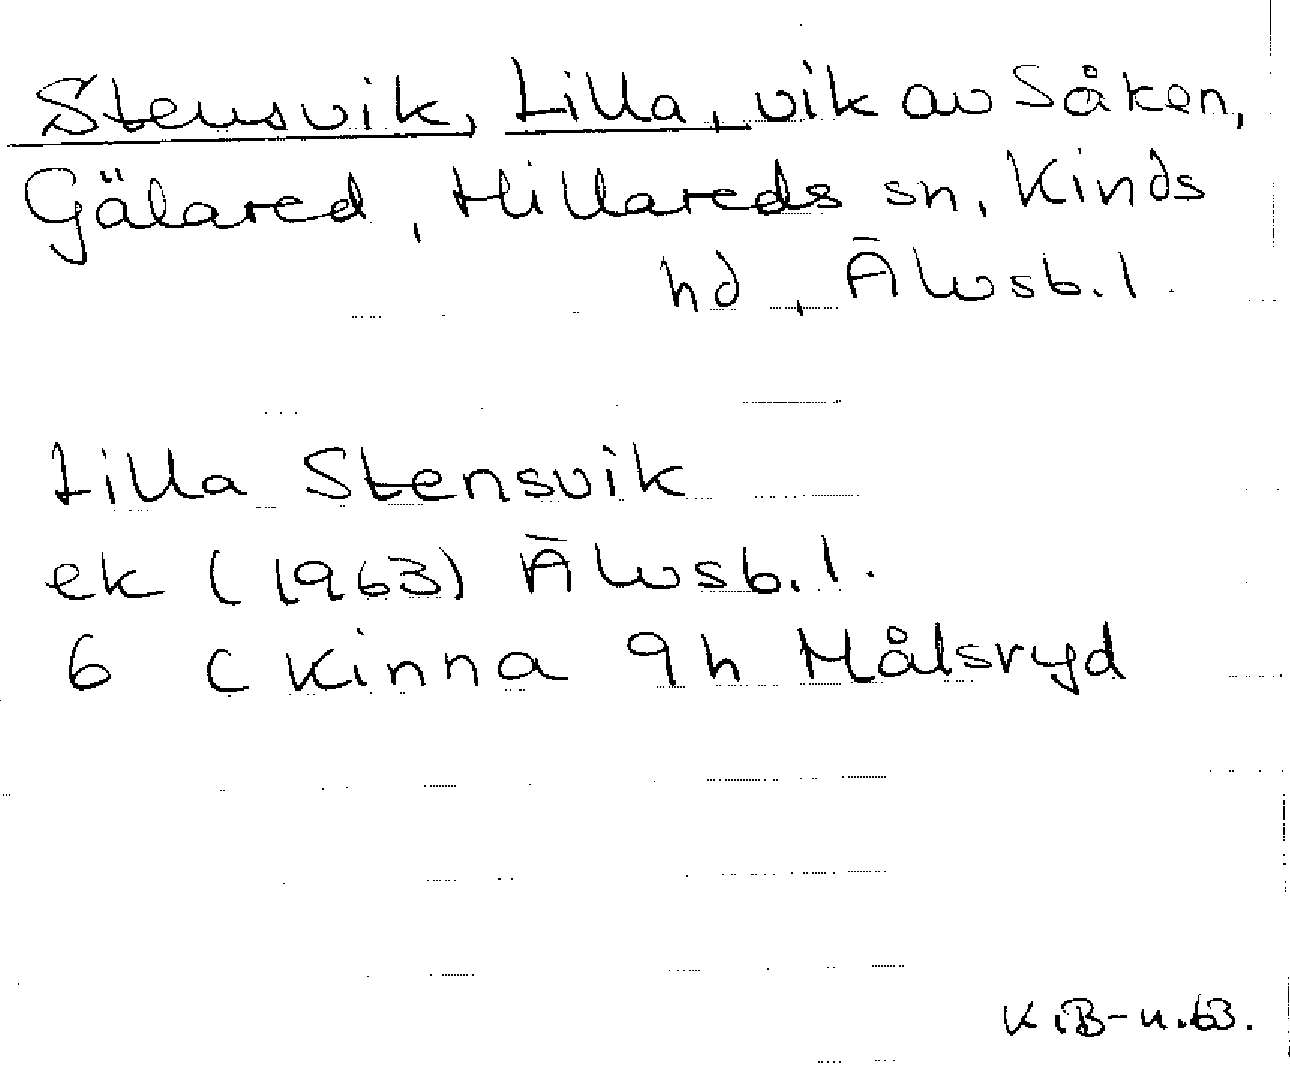 Stensvik, Lilla, vik av Såken,
Gälared, Hillareds sn, Kinds
hd, Älvsb. l.
Lilla Stensvik
ek (1963) Älvsb. l.
6 C Kinna 9h Målsryd